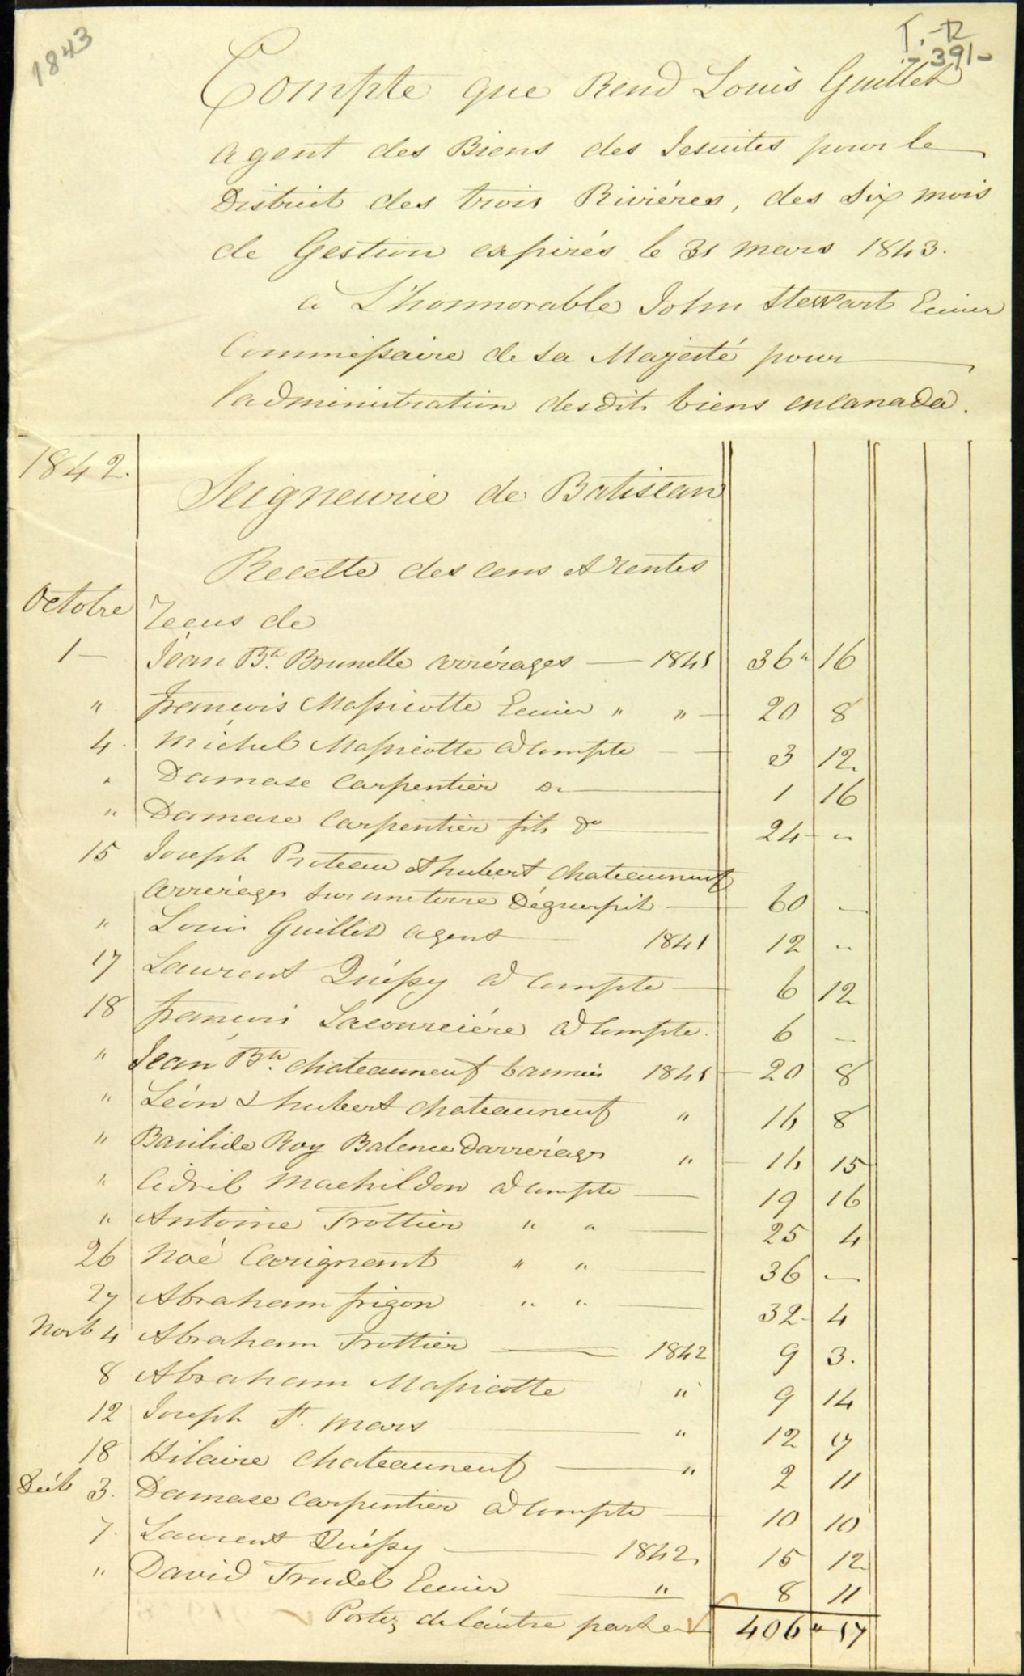 1843
T.-R
-391-
Compte que Rend Louis Guillet
agent des Biens des Jesuites pour le
District des trois Riviéres, des Six mois
de Gestion expirés le 31 mars 1843.
a L'honnorable John Stewart Ecuier
Commissaire de Sa Majesté pour
l'administration desdits biens en canada.
1842.
Seigneurie de Batiscan
Recette des cens et rentes
Octobre Recus de
1 — Jean Bte. Brunelle arrérages — 1841 36 " 16
" françois Massicotte Ecuier " " — 20 8
4 Michel Massicotte acompte — 3 12
" Damase Carpentier Do — 1 16
" Damase Carpentier fils do — 24 - "
15 Joseph Proteau & hubert chateauneuf
arrérages sur une terre Déguerpit — 60 —
" Louis Guillet agent 1841 12 "
17 Laurent Quessy acompte — 6 12
18 françois Lacourciére acompte. 6 —
" Jean Bte. chateauneuf 1841 — 20 8
" Léon & hubert chateauneuf " 16 8
" Basilide Roy Balence Darrérages " — 16 15
" Cidril Machildon acompte — 19 16
" Antoine Trottier " " — 25 4
26 Noé Carignant " " — 36 —
27 Abraham frigon " " — 32 - 4
Novb 4 Abraham Trottier — 1842 9 3.
8 Abraham Massicotte " 9 14
12 Joseph St. Mars — " 12 17
18 Hilaire Chateauneuf — " 2 11
Décb 3. Damase Carpentier acompte — 10 10
7 Laurent Quessy — 1842, 15 12
" David Trudel Ecuier — " 8 11
Portez de l'autre part 406 " 17